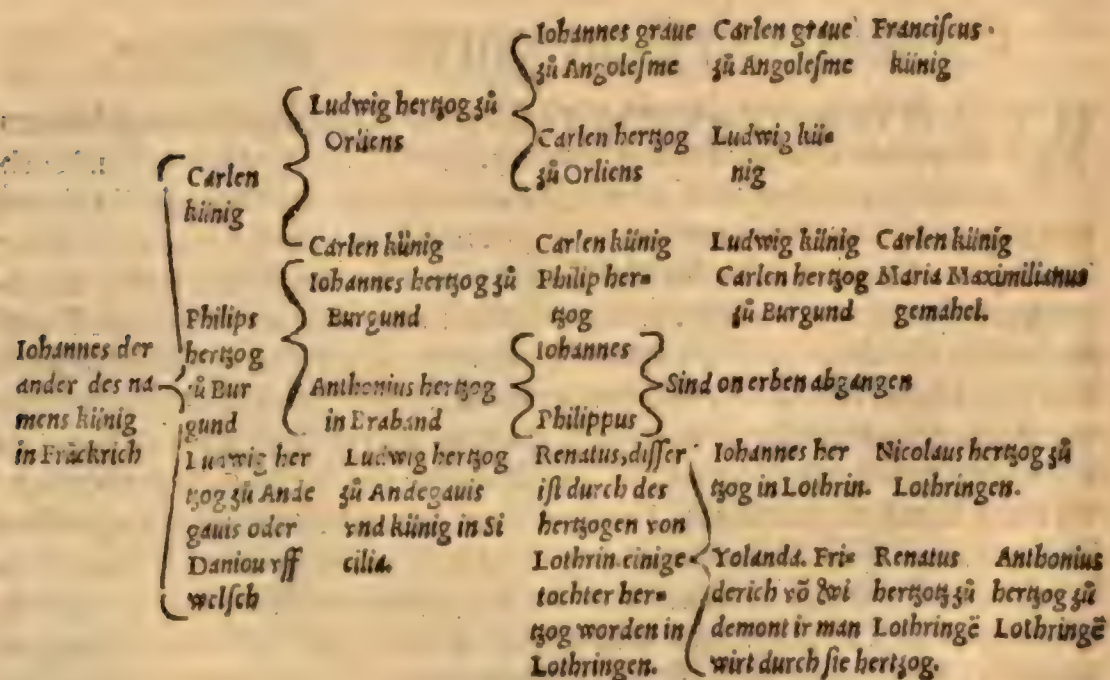 Iohannes der
ander des na
mens künig
in Fräckrich
Carlen
künig
Philips
hertzog
zů Bur
gund
Ludwig her
tzog zů Ande
gauis oder
Daniou vff
welsch
Ludwig hertzog zů
Orliens
Carlen künig
Iohannes hertzog zů
Burgund
Anthonius hertzog
in Braband
Ludwig hertzog
zů Andegauis
vnd künig in Si
cilia.
Iohannes graue
zů Angolesme
Carlen hertzog
zů Orliens
Carlen künig
Philip her=
tzog
Iohannes
Philippus
Sind on erben abgangen
Renatus, disser
ist durch des
hertzogen von
Lothrin. einige
tochter her=
tzog worden in
Lothringen.
Carlen graue
zů Angolesme
Ludwig kü=
nig
Ludwig künig
Carlen hertzog
zů Burgund
Iohannes her
tzog in Lothrin.
Yolanda. Fri=
derich võ Wi
demont ir man
wirt durch sie hertzog.
Franciscus
künig
Carlen künig
Maria Maximilianus
gemahel.
Nicolaus hertzog zů
Lothringen.
Renatus
hertzotz zů
Lothringē
Anthonius
hertzog zů
Lothringē